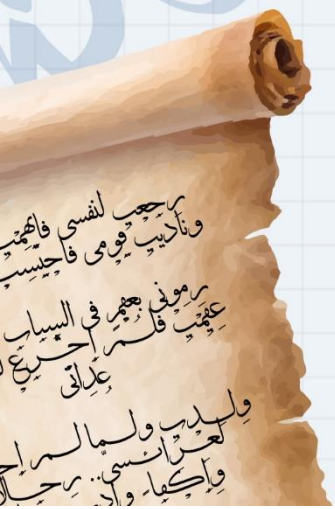 رجعت لنفسي فاتهمت
وناديت قومي فاحتسبت
رموني بعقم في الشباب
عقمت فلم أجزع ل
عداتي
ولدت ولما لم أج
لعرائسي.. رجالا
وأكفاء و